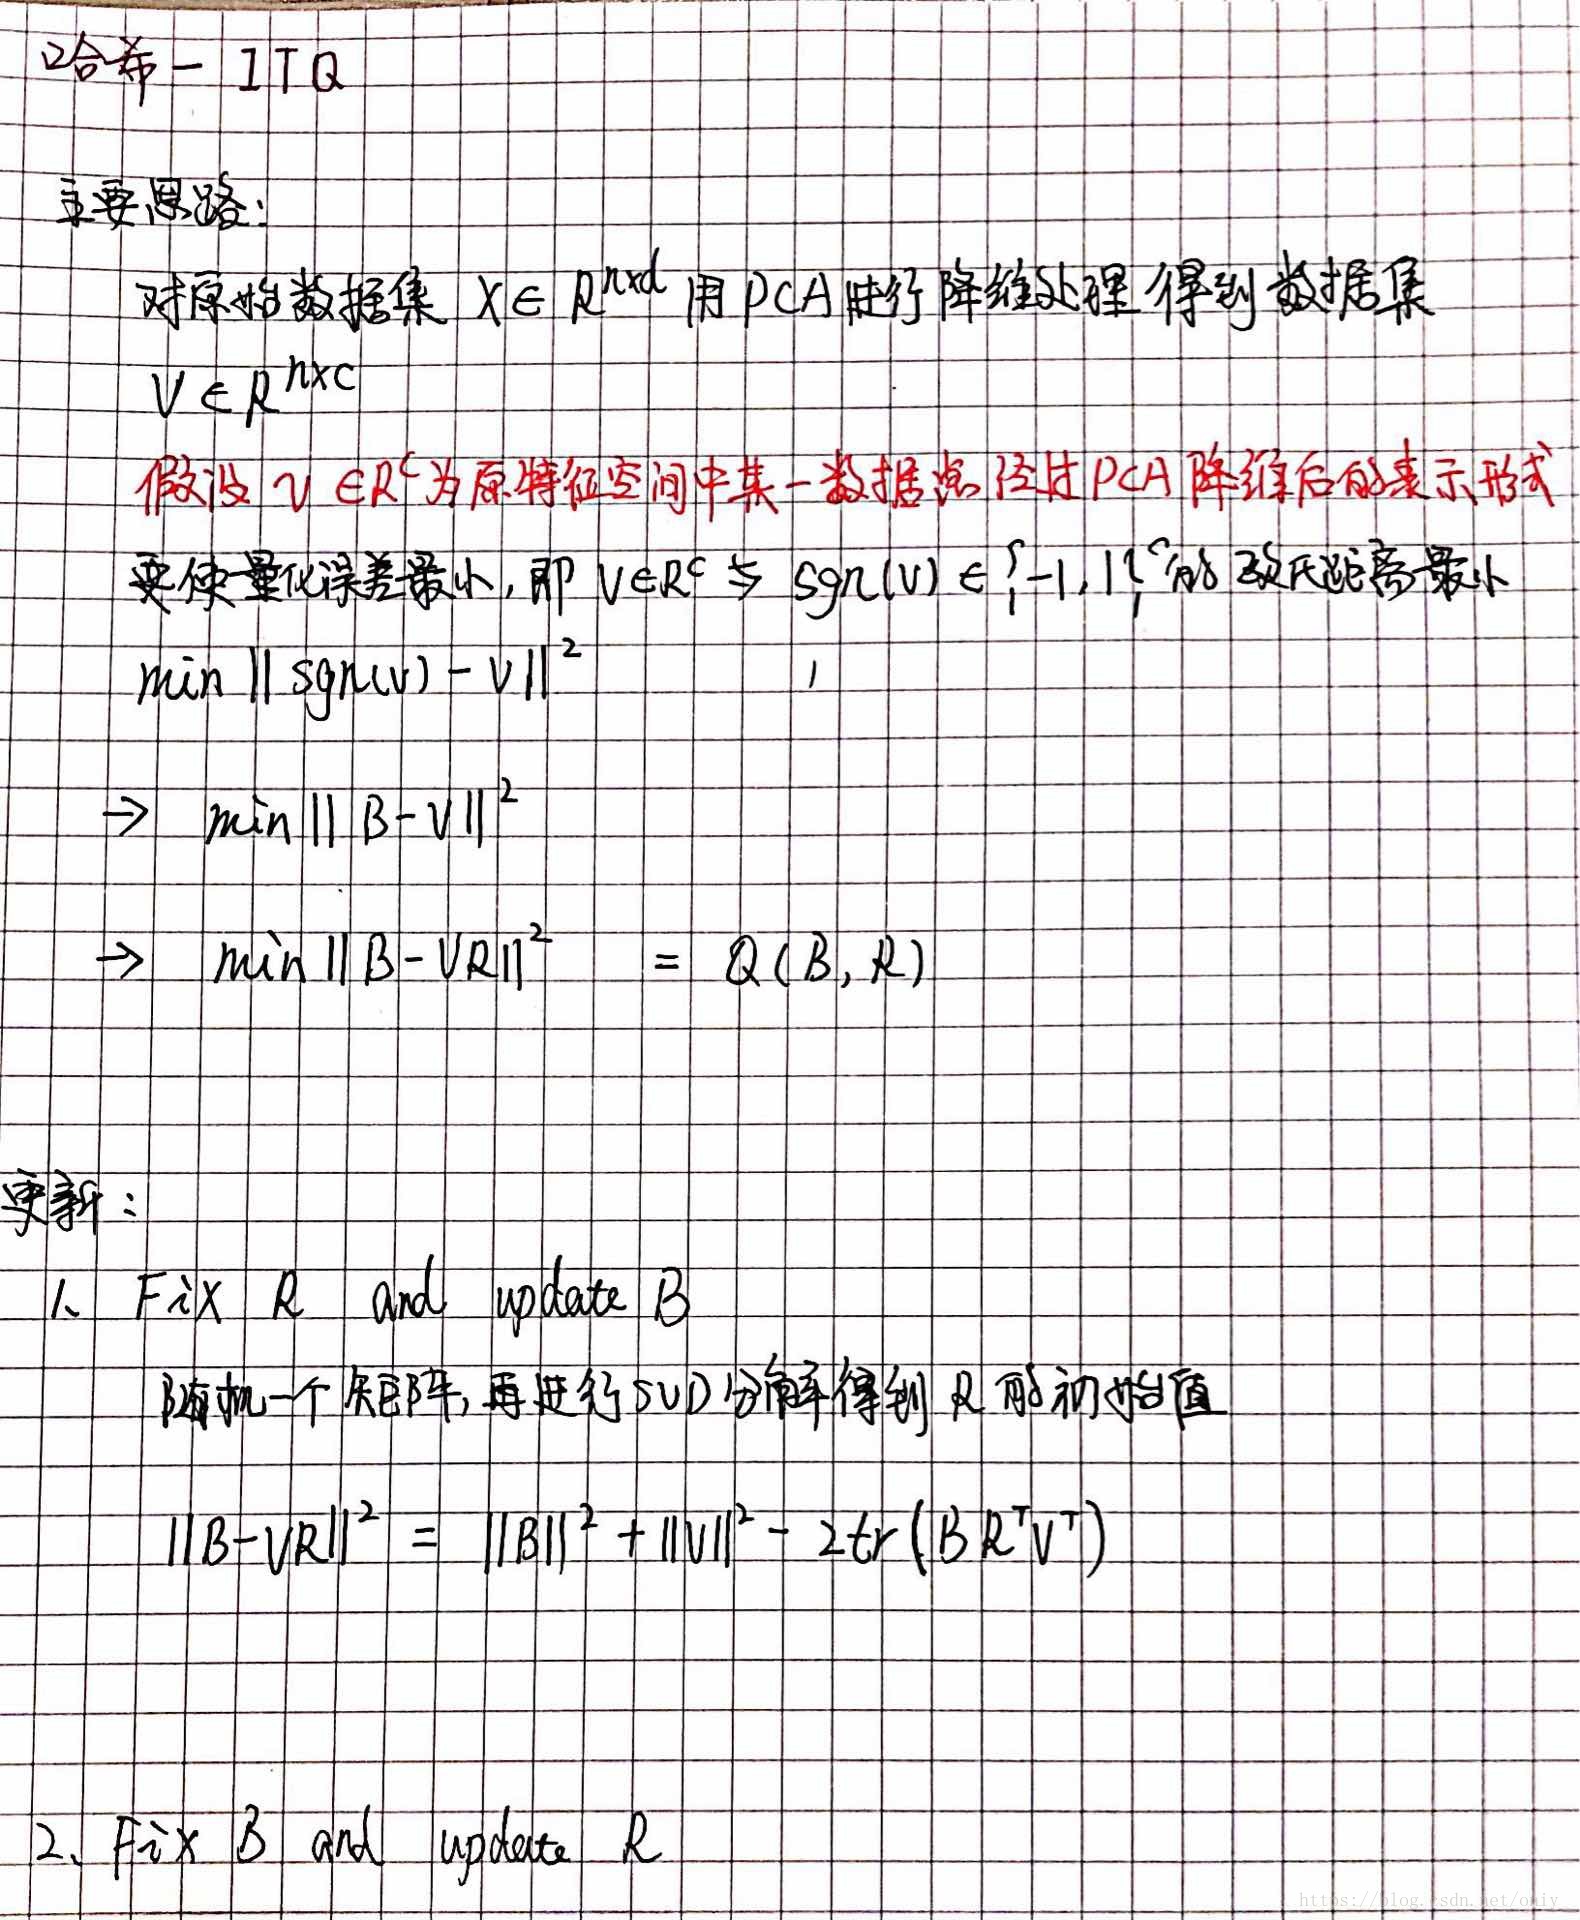 哈希 - ITQ
主要思路:
对原始数据集 X ∈ R^{n×d} 用 PCA 进行降维处理 得到数据集
V ∈ R^{n×c}
假设 v ∈ R^c 为原特征空间中某一数据点 经过 PCA 降维后的表示形式
要使量化误差最小, 即 v ∈ R^c 与 sgn(v) ∈ {-1, 1}^c 的欧氏距离最小
min || sgn(v) - v ||^2
→ min || B - V ||^2
→ min || B - VR ||^2 = Q(B, R)
更新:
1、 Fix R and update B
随机一个矩阵, 再进行 SVD 分解得到 R 的初始值
||B - VR||^2 = ||B||^2 + ||V||^2 - 2tr(B R^T V^T)
2、 Fix B and update R